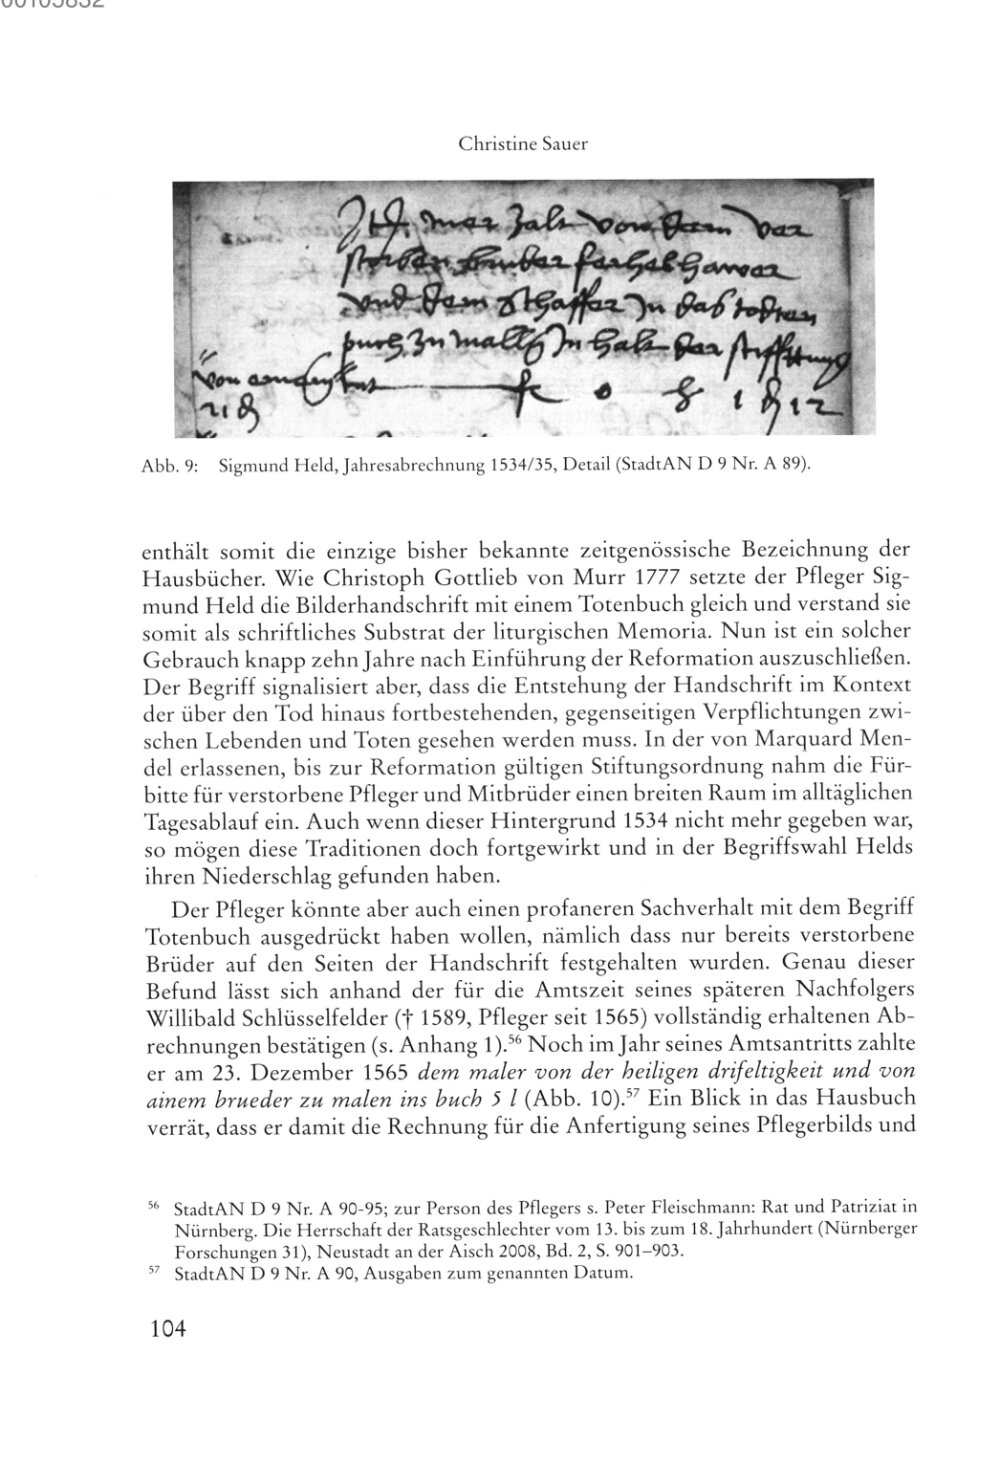 00105832
Christine Sauer
Itt. mer zalt von dem ver
storben bruder
und dem schaffer In das todten
puch zu mallen In halt der stifftung
von
Abb. 9: Sigmund Held, Jahresabrechnung 1534/35, Detail (StadtAN D 9 Nr. A 89).
enthält somit die einzige bisher bekannte zeitgenössische Bezeichnung der
Hausbücher. Wie Christoph Gottlieb von Murr 1777 setzte der Pfleger Sig-
mund Held die Bilderhandschrift mit einem Totenbuch gleich und verstand sie
somit als schriftliches Substrat der liturgischen Memoria. Nun ist ein solcher
Gebrauch knapp zehn Jahre nach Einführung der Reformation auszuschließen.
Der Begriff signalisiert aber, dass die Entstehung der Handschrift im Kontext
der über den Tod hinaus fortbestehenden, gegenseitigen Verpflichtungen zwi-
schen Lebenden und Toten gesehen werden muss. In der von Marquard Men-
del erlassenen, bis zur Reformation gültigen Stiftungsordnung nahm die Für-
bitte für verstorbene Pfleger und Mitbrüder einen breiten Raum im alltäglichen
Tagesablauf ein. Auch wenn dieser Hintergrund 1534 nicht mehr gegeben war,
so mögen diese Traditionen doch fortgewirkt und in der Begriffswahl Helds
ihren Niederschlag gefunden haben.
Der Pfleger könnte aber auch einen profaneren Sachverhalt mit dem Begriff
Totenbuch ausgedrückt haben wollen, nämlich dass nur bereits verstorbene
Brüder auf den Seiten der Handschrift festgehalten wurden. Genau dieser
Befund lässt sich anhand der für die Amtszeit seines späteren Nachfolgers
Willibald Schlüsselfelder († 1589, Pfleger seit 1565) vollständig erhaltenen Ab-
rechnungen bestätigen (s. Anhang 1).⁵⁶ Noch im Jahr seines Amtsantritts zahlte
er am 23. Dezember 1565 dem maler von der heiligen drifeltigkeit und von
ainem brueder zu malen ins buch 5 l (Abb. 10).⁵⁷ Ein Blick in das Hausbuch
verrät, dass er damit die Rechnung für die Anfertigung seines Pflegerbilds und
⁵⁶ StadtAN D 9 Nr. A 90-95; zur Person des Pflegers s. Peter Fleischmann: Rat und Patriziat in
Nürnberg. Die Herrschaft der Ratsgeschlechter vom 13. bis zum 18. Jahrhundert (Nürnberger
Forschungen 31), Neustadt an der Aisch 2008, Bd. 2, S. 901–903.
⁵⁷ StadtAN D 9 Nr. A 90, Ausgaben zum genannten Datum.
104